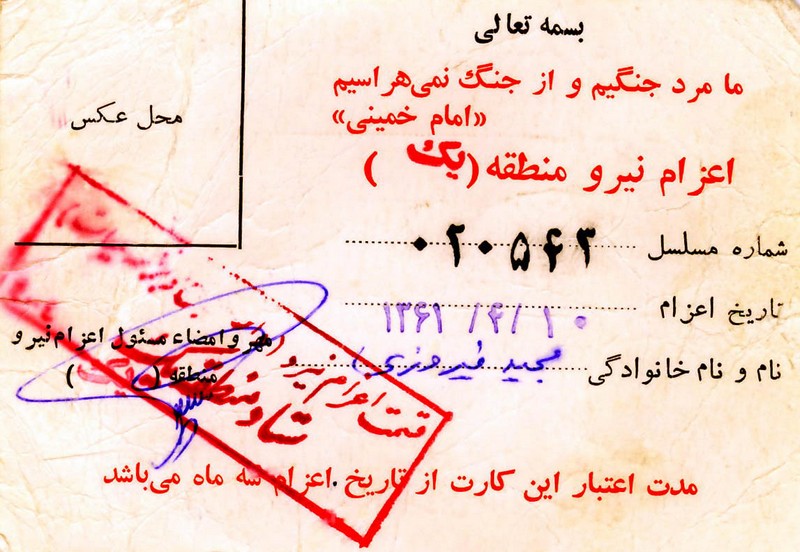 بسمه تعالی
ما مرد جنگیم و از جنگ نمی‌هراسیم
«امام خمینی»
اعزام نیرو منطقه (یک)
محل عکس
شماره مسلسل ۰۲۰۵۶۳
تاریخ اعزام ۱۳۶۱/۴/۱۰
نام و نام خانوادگی مجید فیروزی
مهر و امضاء مسئول اعزام نیرو
منطقه (یک)
قسمت اعزام نیرو
ستاد منطقه
مدت اعتبار این کارت از تاریخ اعزام سه ماه می‌باشد